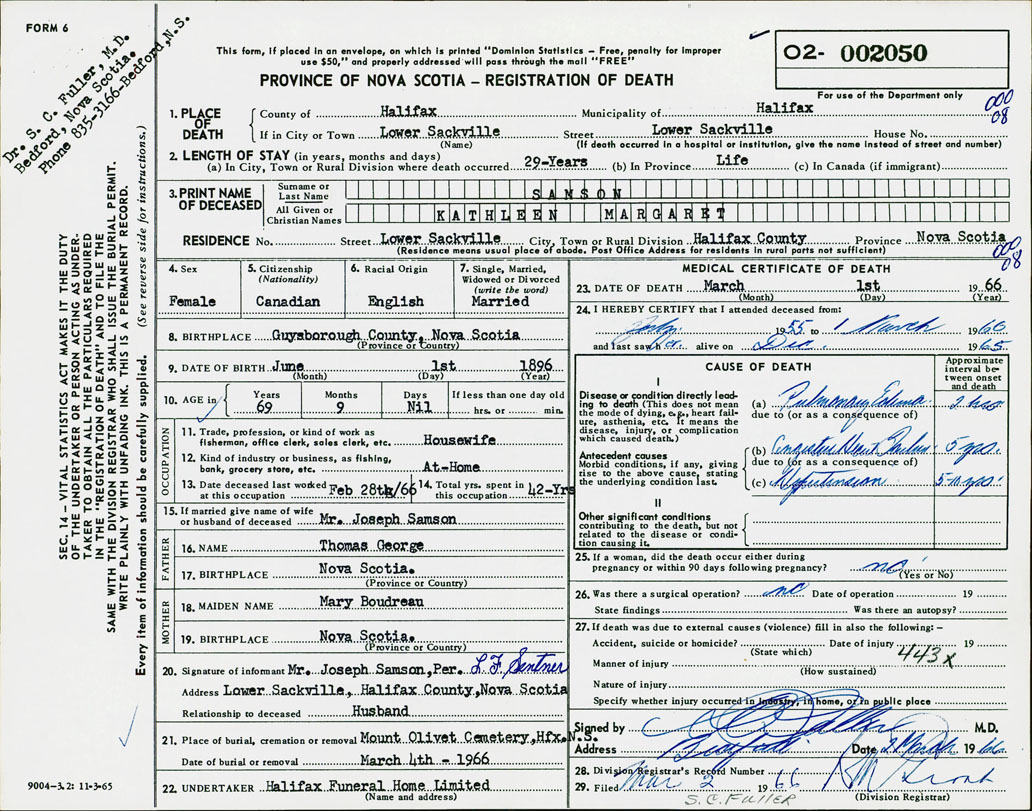 FORM 6
Dr. S. C. Fuller, M. D.
Bedford, Nova Scotia.
Phone 835-3166-Bedford, N.S.
This form, if placed in an envelope, on which is printed "Dominion Statistics – Free, penalty for improper
use $50," and properly addressed will pass through the mail "FREE"
PROVINCE OF NOVA SCOTIA – REGISTRATION OF DEATH
02- 002050
For use of the Department only
000
08
1. PLACE OF DEATH
County of Halifax Municipality of Halifax
If in City or Town Lower Sackville Street Lower Sackville House No.
(Name) (If death occurred in a hospital or institution, give the name instead of street and number)
2. LENGTH OF STAY (in years, months and days)
(a) In City, Town or Rural Division where death occurred 29-Years (b) In Province Life (c) In Canada (if immigrant)
3. PRINT NAME OF DECEASED
Surname or Last Name SAMSON
All Given or Christian Names KATHLEEN MARGARET
RESIDENCE No. Street Lower Sackville City, Town or Rural Division Halifax County Province Nova Scotia
(Residence means usual place of abode. Post Office Address for residents in rural parts not sufficient)
000
08
SEC. 14 – VITAL STATISTICS ACT MAKES IT THE DUTY
OF THE UNDERTAKER OR PERSON ACTING AS UNDER-
TAKER TO OBTAIN ALL THE PARTICULARS REQUIRED
IN THE REGISTRATION OF DEATH AND TO FILE THE
SAME WITH THE DIVISION REGISTRAR WHO SHALL ISSUE THE BURIAL PERMIT.
WRITE PLAINLY WITH UNFADING INK. THIS IS A PERMANENT RECORD.
Every item of information should be carefully supplied. (See reverse side for instructions.)
4. Sex
Female
5. Citizenship
(Nationality)
Canadian
6. Racial Origin
English
7. Single, Married,
Widowed or Divorced
(write the word)
Married
8. BIRTHPLACE Guysborough County, Nova Scotia
(Province or Country)
9. DATE OF BIRTH June 1st 1896
(Month) (Day) (Year)
10. AGE in
Years Months Days If less than one day old
69 9 Nil hrs. or min.
OCCUPATION
11. Trade, profession, or kind of work as
fisherman, office clerk, sales clerk, etc. Housewife
12. Kind of industry or business, as fishing,
bank, grocery store, etc. At-Home
13. Date deceased last worked
at this occupation Feb 28th/66
14. Total yrs. spent in
this occupation 42-Yrs
15. If married give name of wife
or husband of deceased Mr. Joseph Samson
FATHER
16. NAME Thomas George
17. BIRTHPLACE Nova Scotia.
(Province or Country)
MOTHER
18. MAIDEN NAME Mary Boudreau
19. BIRTHPLACE Nova Scotia.
(Province or Country)
20. Signature of informant Mr. Joseph Samson, Per. L F. Sentner
Address Lower Sackville, Halifax County, Nova Scotia
Relationship to deceased Husband
21. Place of burial, cremation or removal Mount Olivet Cemetery, Hfx, N.S.
Date of burial or removal March 4th - 1966
22. UNDERTAKER Halifax Funeral Home Limited
(Name and address)
MEDICAL CERTIFICATE OF DEATH
23. DATE OF DEATH March 1st 1966
(Month) (Day) (Year)
24. I HEREBY CERTIFY that I attended deceased from:
1955 to 1 March 1966
and last saw h er alive on Dec. 1965
CAUSE OF DEATH
Approximate
interval be-
tween onset
and death
I
Disease or condition directly lead-
ing to death (This does not mean
the mode of dying, e.g., heart fail-
ure, asthenia, etc. It means the
disease, injury, or complication
which caused death.)
(a) Pulmonary Edema 2 hrs
due to (or as a consequence of)
Antecedent causes
Morbid conditions, if any, giving
rise to the above cause, stating
the underlying condition last.
(b) Congestive Heart Failure 5 yrs.
due to (or as a consequence of)
(c) Hypertension yrs.
II
Other significant conditions
contributing to the death, but not
related to the disease or condi-
tion causing it.
25. If a woman, did the death occur either during
pregnancy or within 90 days following pregnancy? no
(Yes or No)
26. Was there a surgical operation? no Date of operation 19
State findings Was there an autopsy?
27. If death was due to external causes (violence) fill in also the following: –
Accident, suicide or homicide? Date of injury 19
(State which)
443X
Manner of injury
(How sustained)
Nature of injury
Specify whether injury occurred in industry, in home, or in public place
Signed by M.D.
Address Bedford Date 2 March 1966
28. Division Registrar's Record Number
29. Filed Mar 2 1966
(Division Registrar)
S.C. FULLER
9004-3.2: 11-3-65